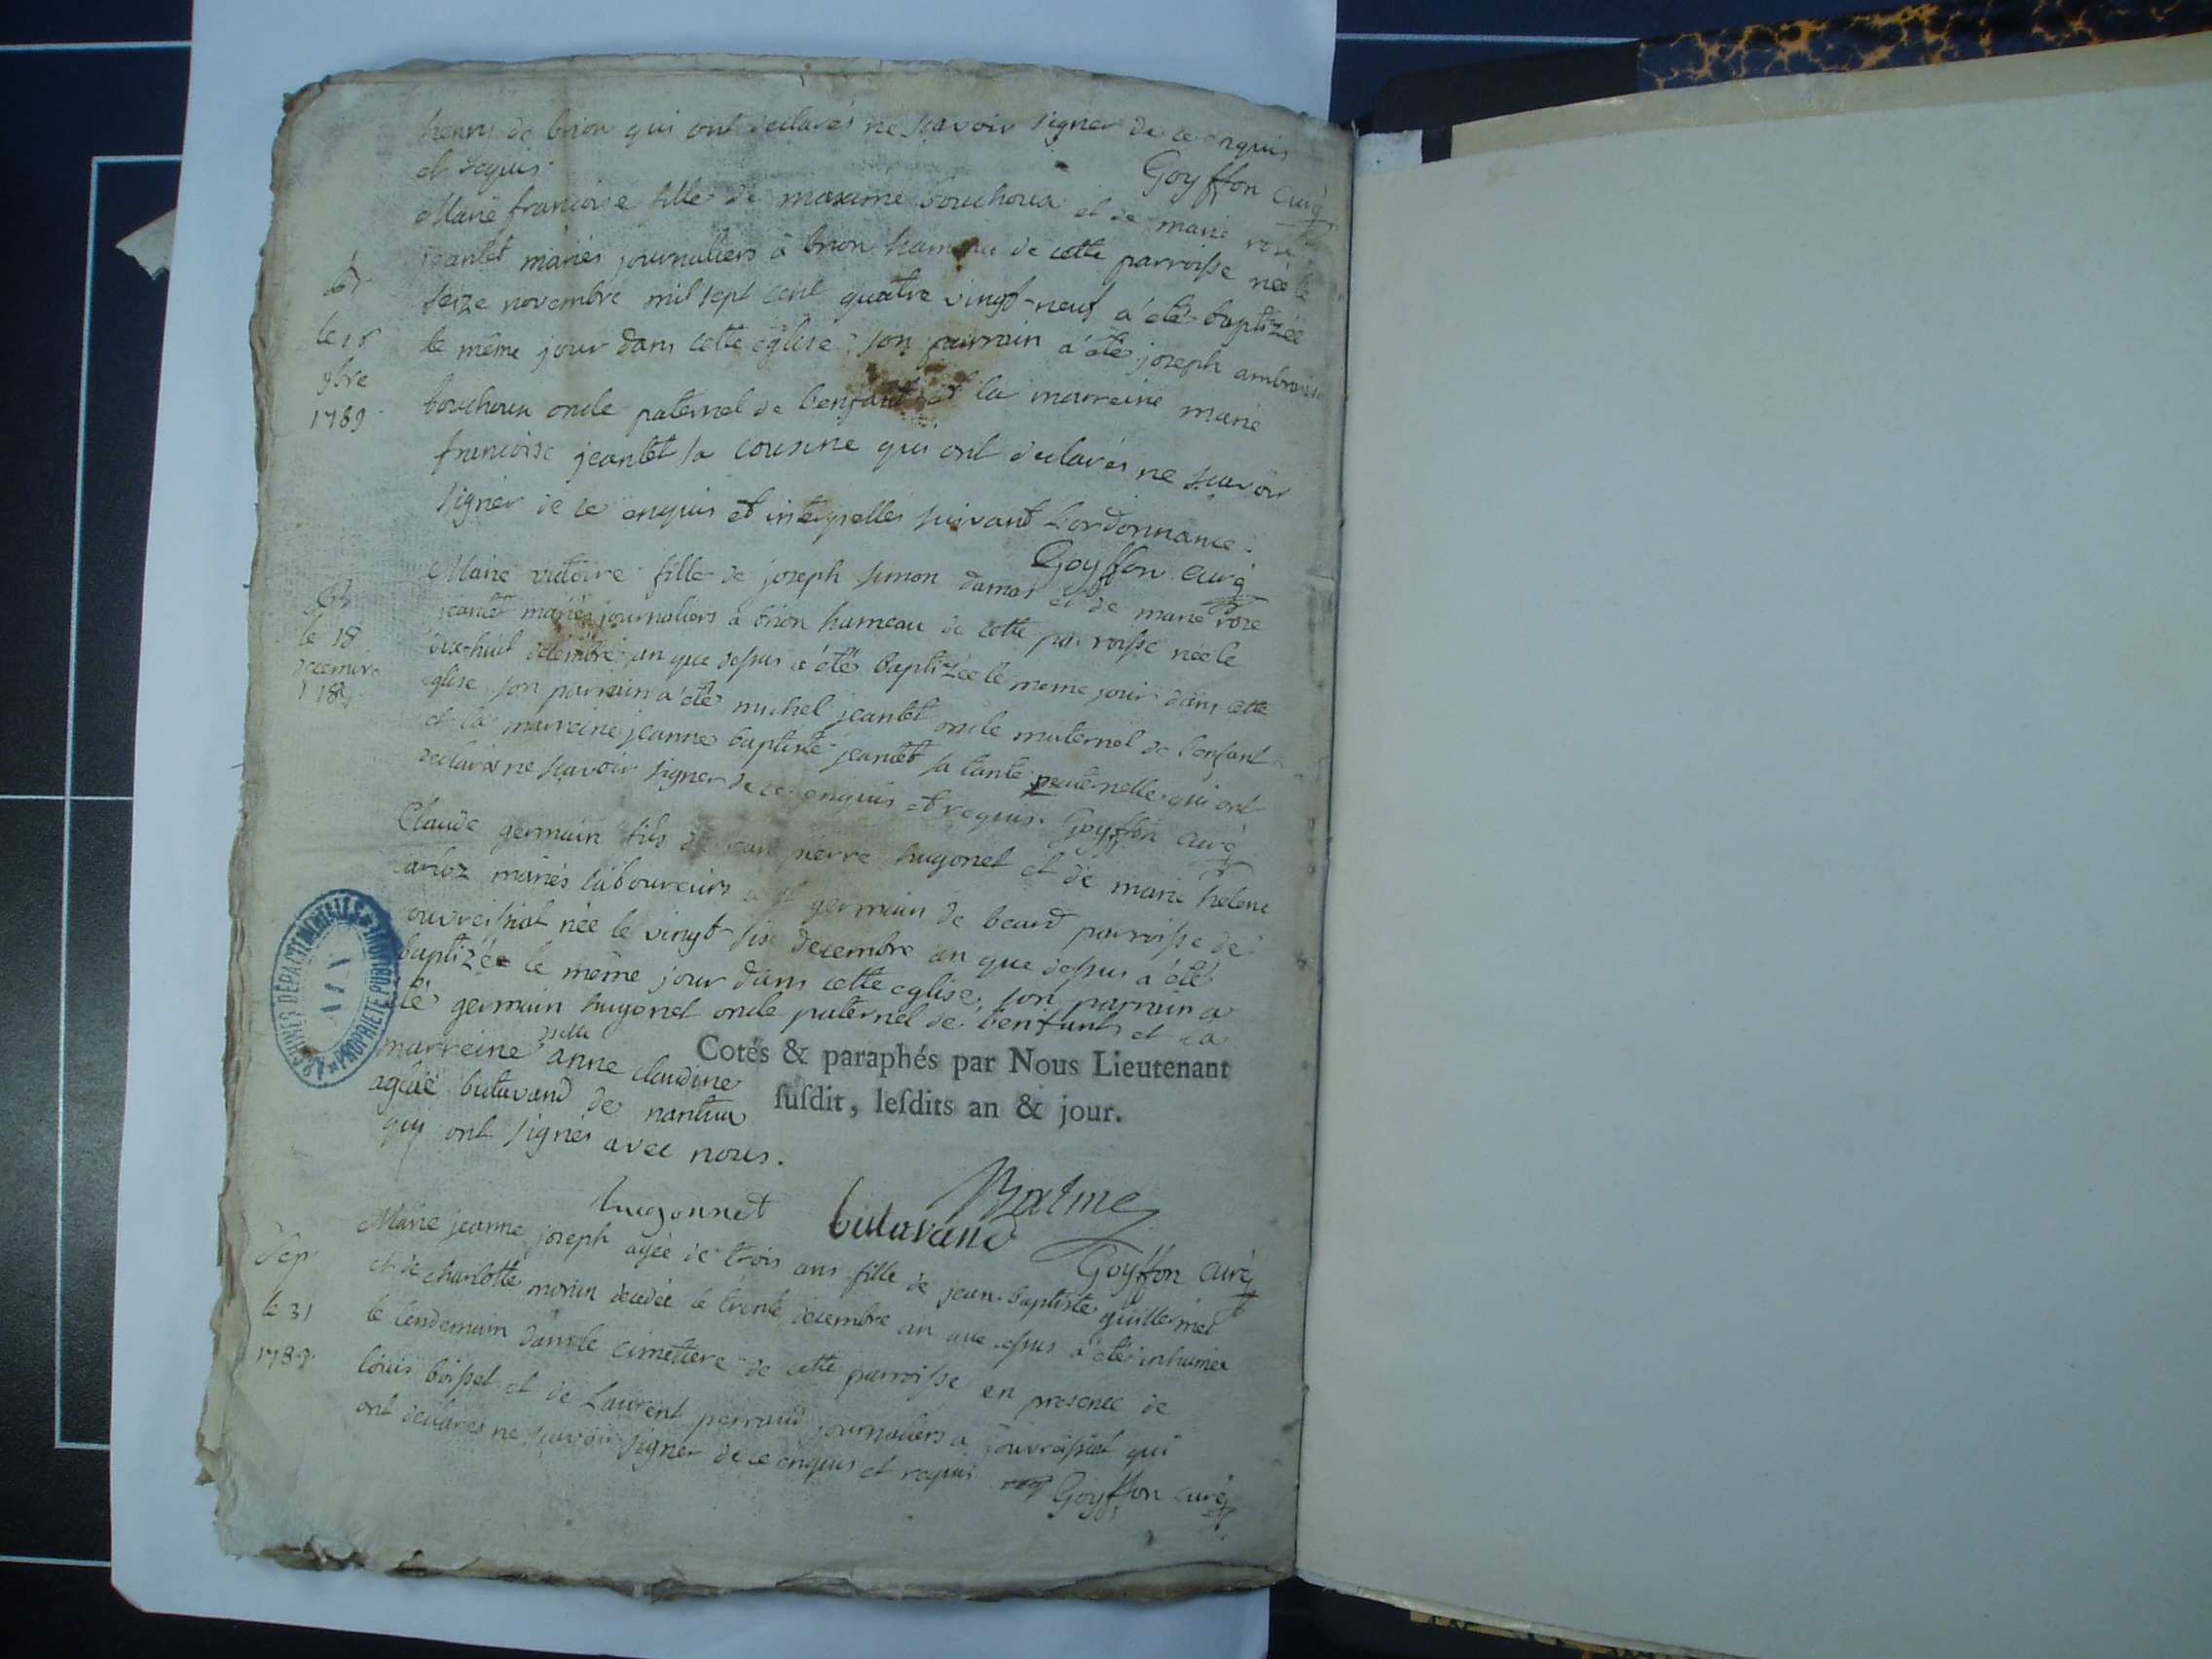 henry de brion qui ont declarés ne sçavoir signer de ce enquis
et requis.
Goyffon curé
Marie françoise fille de maxime bouchoux et de marie rose
jeantet mariés journaliers à brion hameau de cette parroisse née le
seize novembre mil sept cent quatre vingt-neuf a été baptizée
le même jour dans cette église. son parrain a été joseph ambroise
bouchoux oncle paternel de l'enfant et la marreine marie
françoise jeantet sa cousine qui ont declarés ne sçavoir
signer de ce enquis et interpelles suivant l'ordonnance.
Goyffon curé
le 16
9bre
1789.
Marie victoire fille de joseph simon damas et de marie rose
jeantet mariés journaliers a brion hameau de cette parroisse née le
dix-huit décembre an que dessus a été baptizée le meme jour dans cette
eglise, son parrain a été michel jeantet oncle maternel de l'enfant
et la marreine jeanne baptiste jeantet sa tante maternelle qui ont
declarés ne sçavoir signer de ce enquis et requis. Goyffon curé
le 18
decembre
1789.
Claude germain fils de jean pierre hugonet et de marie helene
carloz mariés laboureurs a st germain de beard parroisse de
ouvreissiat née le vingt-six decembre an que dessus a été
baptizée le même jour dans cette eglise, son parrain a
été germain hugonet oncle paternel de l'enfant et la
marreine dselle anne claudine
aglaé butavand de nantua
qui ont signés avec nous.
Cotés & paraphés par Nous Lieutenant
ſuſdit, leſdits an & jour.
hugonnet butavand
Goyffon curé
Marie jeanne joseph agée de trois ans fille de jean-baptiste guillermet
et de charlotte morin decedée le trente decembre an que dessus a été inhumée
le lendemain dans le cimetiere de cette parroisse en presence de
louis boisset et de Laurent perraud journaliers a ouvreissiat qui
ont declarés ne sçavoir signer de ce enquis et requis Goyffon curé
Sep.
le 31
1789.
ARCHIVES DÉPARTEMENTALES
AIN
PROPRIETE PUBLIQUE